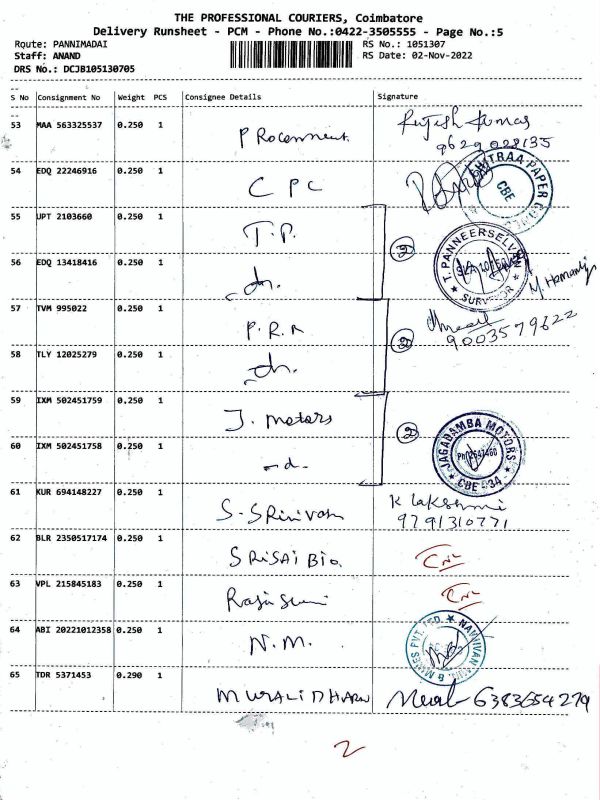 THE PROFESSIONAL COURIERS, Coimbatore
Delivery Runsheet - PCM - Phone No.:0422-3505555 - Page No.:5
Route: PANNIMADAI RS No.: 1051307
Staff: ANAND RS Date: 02-Nov-2022
DRS No.: DCJB105130705
S No Consignment No Weight PCS Consignee Details Signature
53 MAA 563325537 0.250 1 Rajesh Kumar
9629028135
54 EDQ 22246916 0.250 1 C P C CHITRAA PAPER CBE
55 UPT 2103660 0.250 1 T.P. 2 T. PANNEERSELVAM SURVEYOR
56 EDQ 13418416 0.250 1
57 TVM 995022 0.250 1 P.R.A 2 9003579622
58 TLY 12025279 0.250 1
59 IXM 502451759 0.250 1 J. Motors 2 JAGADAMBA MOTORS
60 IXM 502451758 0.250 1 -d- CBE
61 KUR 694148227 0.250 1 S-SRinivan K Lakshmi
9791310771
62 BLR 2350517174 0.250 1 SRiSAi Bio.
63 VPL 215845183 0.250 1
64 ABI 20221012358 0.250 1 N.M. & MINES PVT. LTD.
65 TDR 5371453 0.290 1 MURALI DHARN 6383654279
2